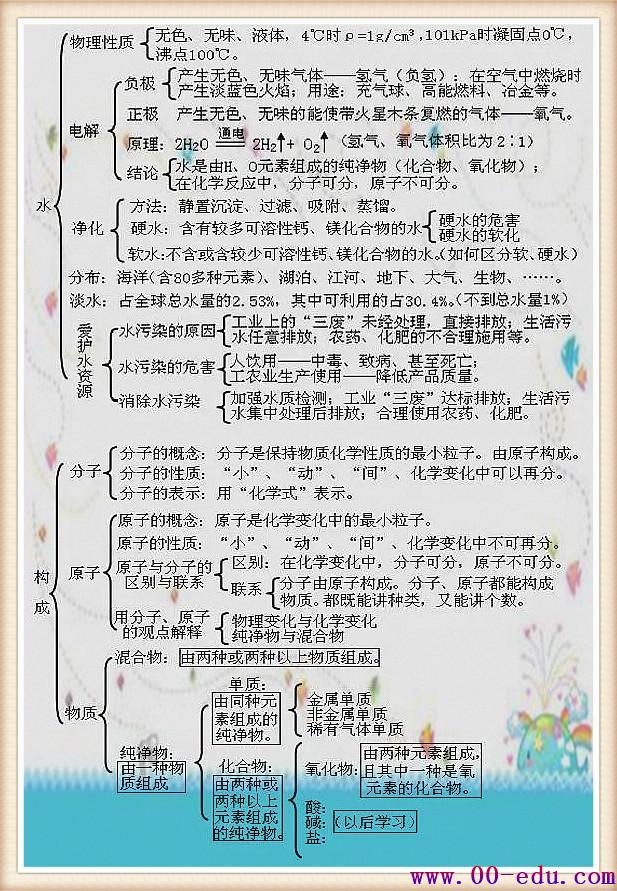 物理性质
无色、无味、液体，4℃时ρ=1g/cm³,101kPa时凝固点0℃，
沸点100℃。
水
电解
负极
产生无色、无味气体——氢气（负氢）：在空气中燃烧时
产生淡蓝色火焰；用途：充气球、高能燃料、冶金等。
正极 产生无色、无味的能使带火星木条复燃的气体——氧气。
原理：2H2O 通电 2H2↑+ O2↑ （氢气、氧气体积比为2∶1）
结论
水是由H、O元素组成的纯净物（化合物、氧化物）；
在化学反应中，分子可分，原子不可分。
净化
方法：静置沉淀、过滤、吸附、蒸馏。
硬水：含有较多可溶性钙、镁化合物的水
硬水的危害
硬水的软化
软水：不含或含较少可溶性钙、镁化合物的水。(如何区分软、硬水)
分布：海洋(含80多种元素)、湖泊、江河、地下、大气、生物、……。
淡水：占全球总水量的2.53%，其中可利用的占30.4%。(不到总水量1%)
爱护水资源
水污染的原因
工业上的“三废”未经处理，直接排放；生活污
水任意排放；农药、化肥的不合理施用等。
水污染的危害
人饮用——中毒、致病、甚至死亡；
工农业生产使用——降低产品质量。
消除水污染
加强水质检测；工业“三废”达标排放；生活污
水集中处理后排放；合理使用农药、化肥。
构成
分子
分子的概念：分子是保持物质化学性质的最小粒子。由原子构成。
分子的性质：“小”、“动”、“间”、化学变化中可以再分。
分子的表示：用“化学式”表示。
原子
原子的概念：原子是化学变化中的最小粒子。
原子的性质：“小”、“动”、“间”、化学变化中不可再分。
原子与分子的
区别与联系
区别：在化学变化中，分子可分，原子不可分。
联系
分子由原子构成。分子、原子都能构成
物质。都既能讲种类，又能讲个数。
用分子、原子
的观点解释
物理变化与化学变化
纯净物与混合物
物质
混合物：由两种或两种以上物质组成。
纯净物：
由一种物
质组成
单质：
由同种元
素组成的
纯净物。
金属单质
非金属单质
稀有气体单质
化合物：
由两种或
两种以上
元素组成
的纯净物。
氧化物：
由两种元素组成，
且其中一种是氧
元素的化合物。
酸：
碱：（以后学习）
盐：
www.00-edu.com